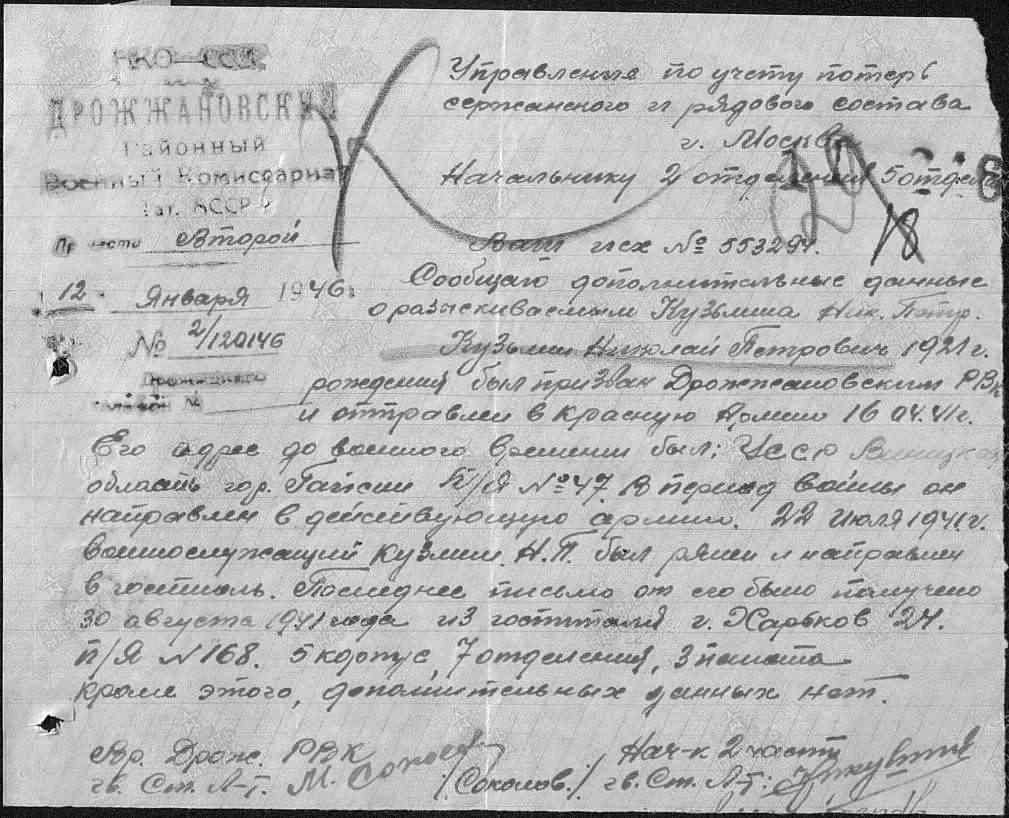 НКО СССР
ДРОЖЖАНОВСКИЙ
Районный
Военный Комиссариат
Тат. АССР
Второй
12 Января 1946
№ 2/120146
Управления по учету потерь
сержанского и рядового состава
г. Москва
Начальнику 2 отделения 5 отдела
18
Ваш исх № 553294.
Сообщаю дополнительные данные
о разыскиваемым Кузьмина Ник. Петр.
Кузьмин Николай Петрович 1921 г.
рождения был призван Дрожжановским РВК
и отправлен в красную Армию 16 04.41 г.
Его адрес до военного времени был: УССР
область гор. П/Я № 47. В период войны он
направлен в действующую армию. 22 июля 1941 г.
военнослужащий Кузмин Н.П. был ранен и направлен
в госпиталь. Последнее письмо от его было получено
30 августа 1941 года из госпиталя г. Харьков 24.
П/Я № 168. 5 корпус, 7 отделения, 3 палата
кроме этого, дополнительных данных нет.
Вр. Дрож. РВК
гв. Ст. Л-т. М. Соколов /Соколов./
Нач-к 2 части
гв. Ст. Л-т: